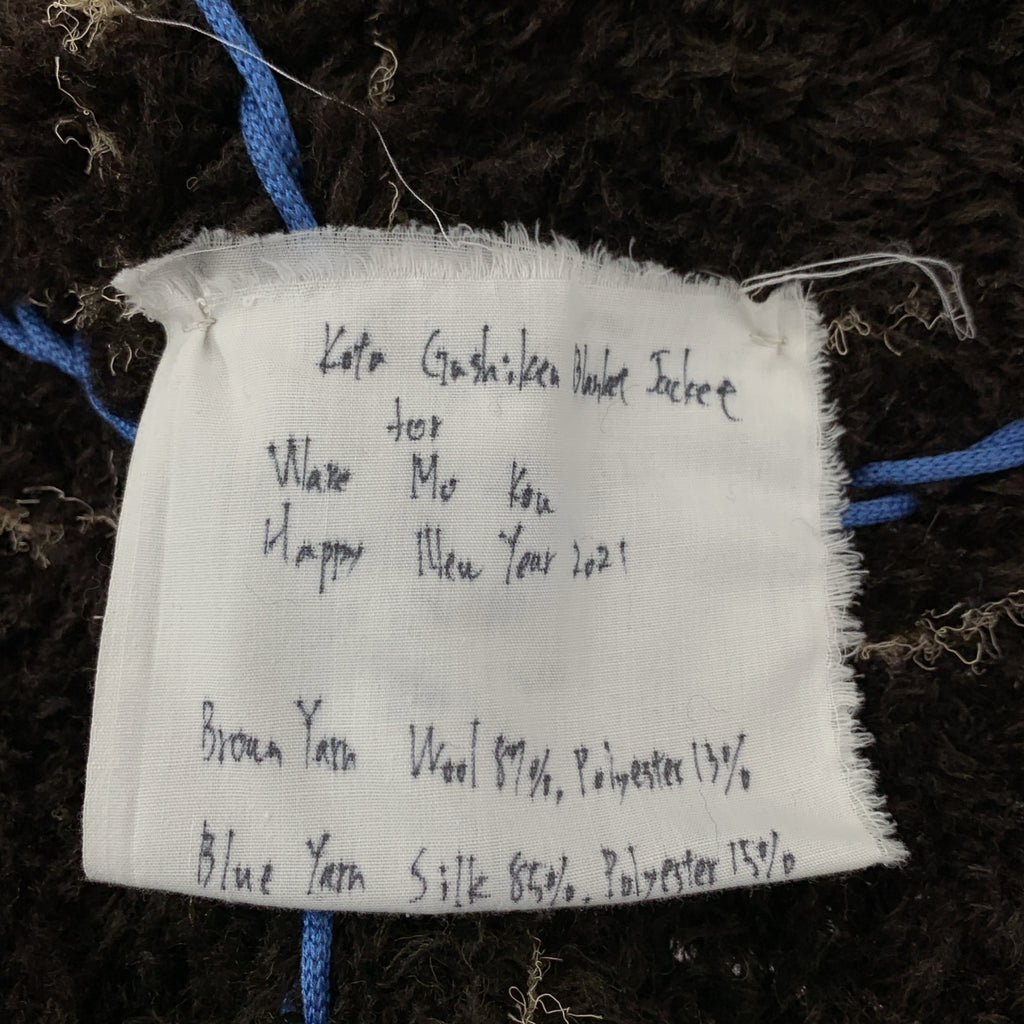 Kota Gushiken Blanket Jacket
for
Ware Mo Kou
Happy New Year 2021
Brown Yarn Wool 87%, Polyester 13%
Blue Yarn Silk 85%, Polyester 15%